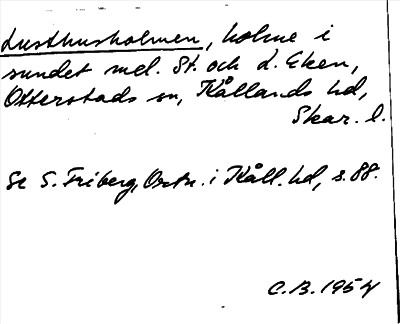 Lusthusholmen, holme i
sundet mel. St. och L. Eken,
Otterstads sn, Kållands hd,
Skar. l.
Se S. Friberg, Ortn. i Kåll. hd, s. 88.
C.B. 1954